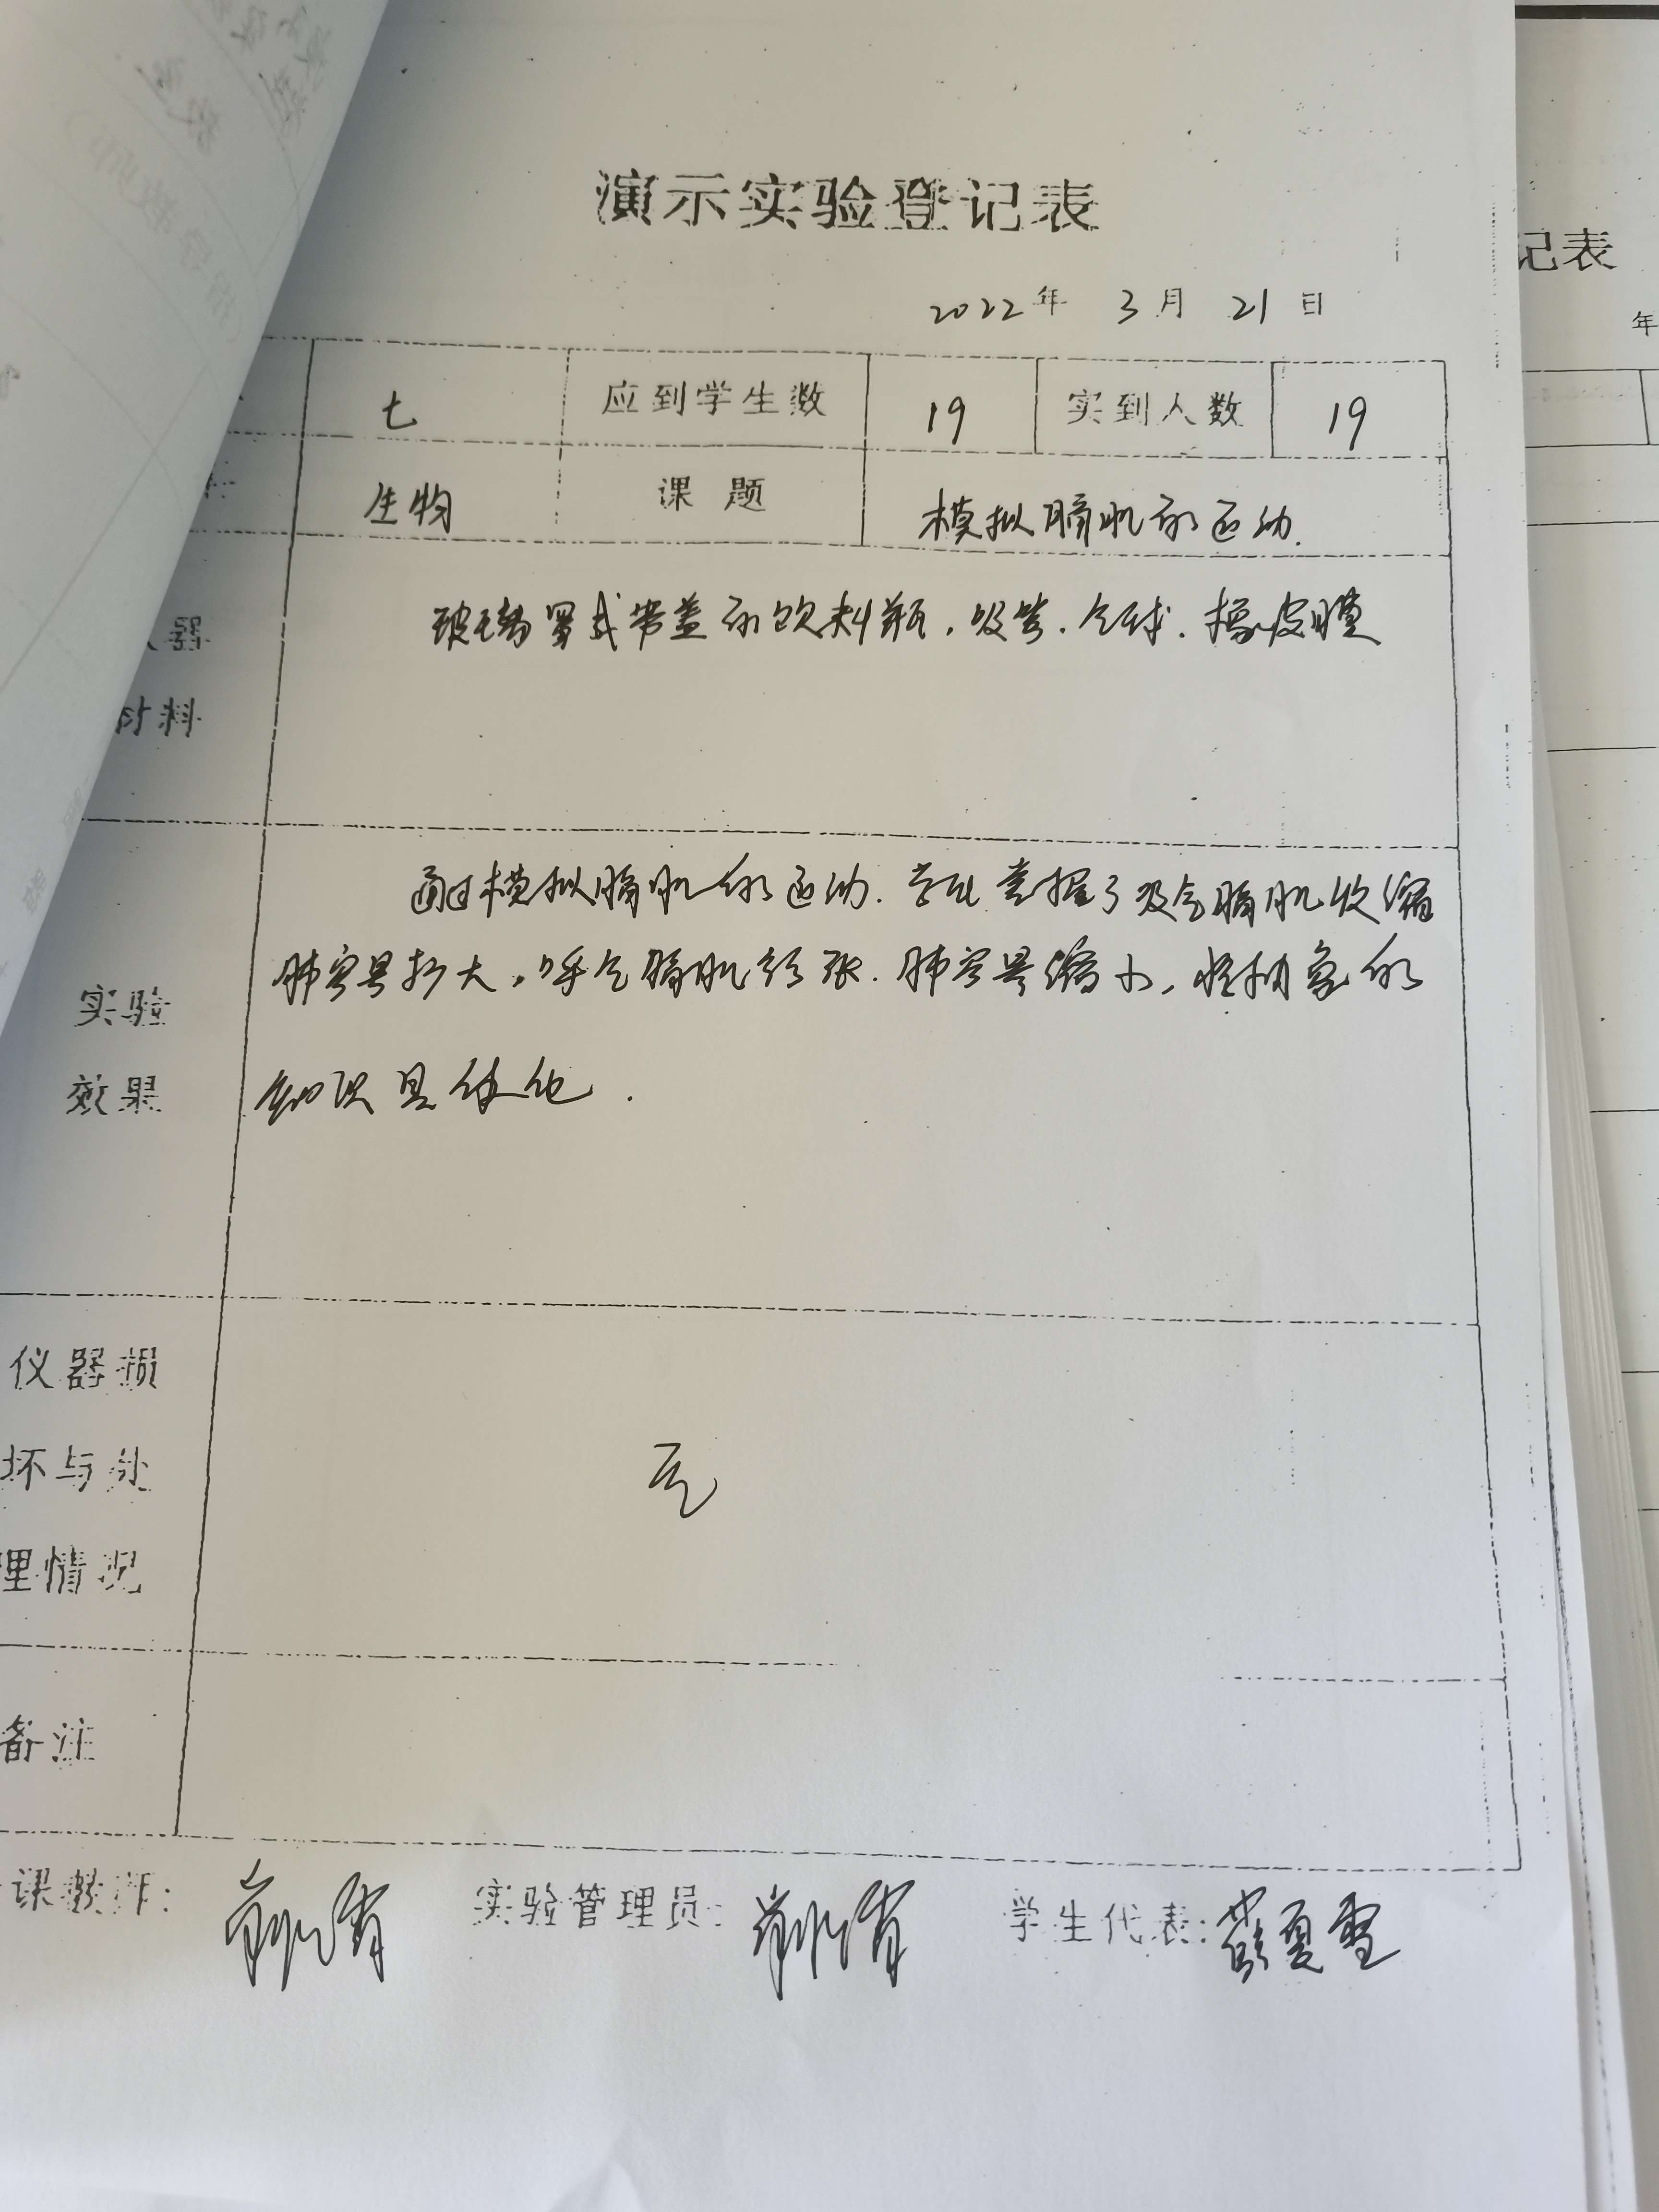 演示实验登记表
2022年 3月 21日
七 应到学生数 19 实到人数 19
生物 课题 模拟膈肌的运动.
器
材料
玻璃罩或带盖的饮料瓶、吸管、气球、橡皮膜
实验
效果
通过模拟膈肌的运动、学生掌握了吸气膈肌收缩
肺容易扩大,呼气膈肌舒张、肺容易缩小,将抽象的
知识具体化.
仪器损
坏与处
理情况
无
备注
课教师: 实验管理员: 学生代表:薛夏雪
记表
年